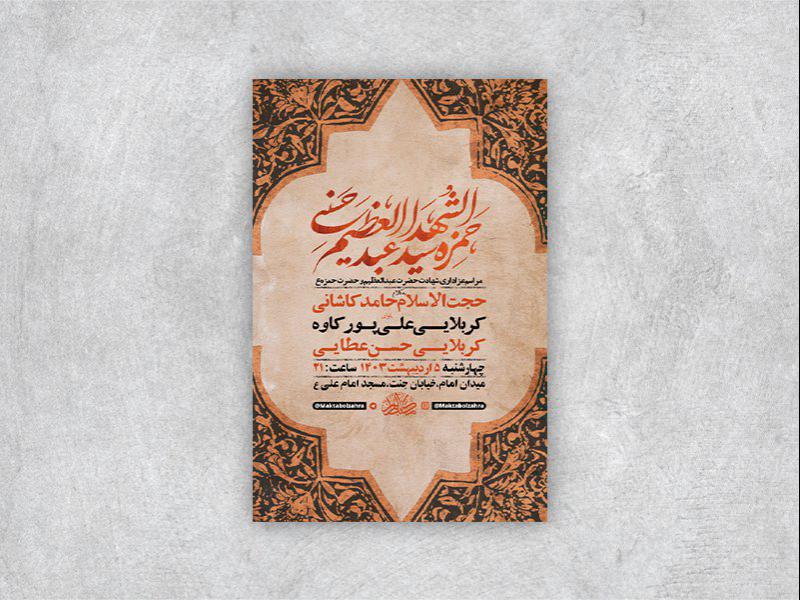 حمزه سیدالشهدا
عبدالعظیم حسنی
مراسم عزاداری شهادت حضرت عبدالعظیم و حضرت حمزه ع
حجت الاسلام حامد کاشانی
کربلایی علی پور کاوه
کربلایی حسن عطایی
چهارشنبه ۵ اردیبهشت ۱۴۰۳ ساعت: ۲۱
میدان امام، خیابان جنت، مسجد امام علی ع
@Maktabolzahra @Maktabolzahra